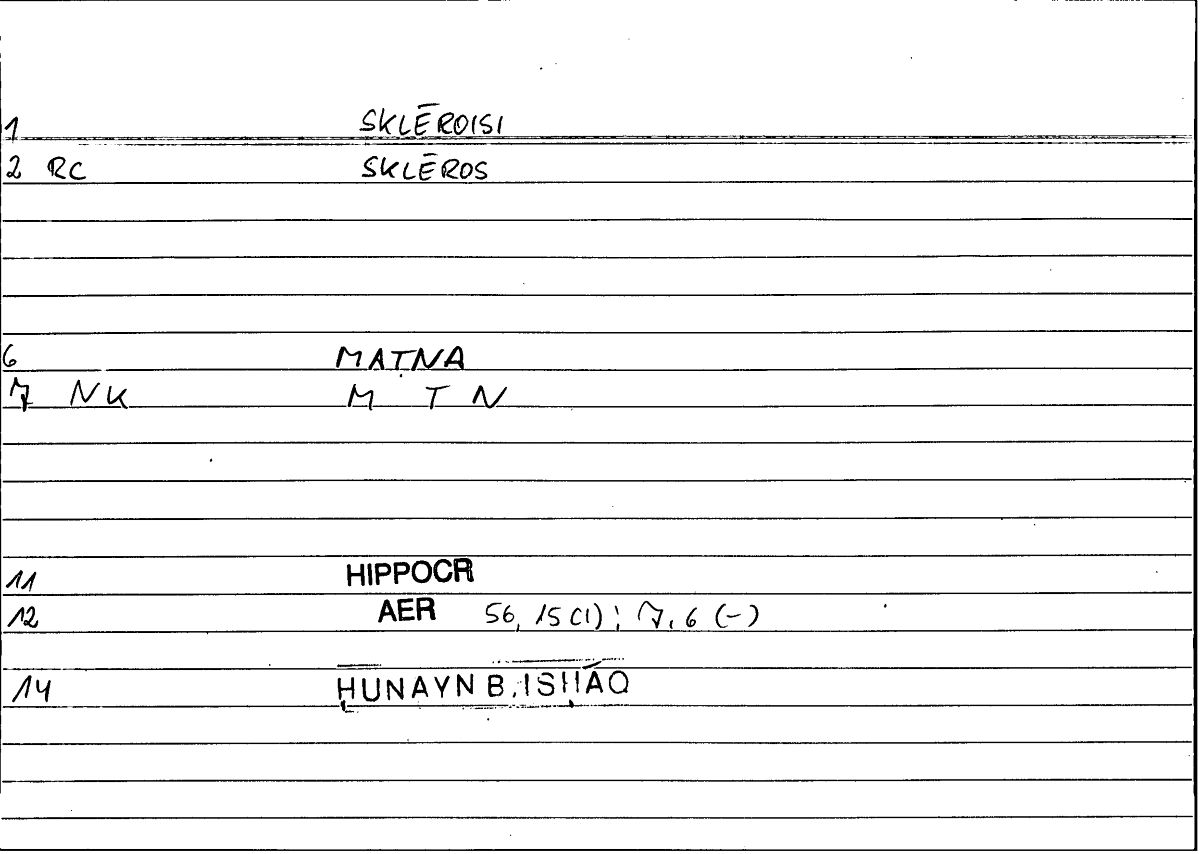 1 SKLĒROISI
2 RC SKLĒROS
6 MATNA
7 NK M T N
11 HIPPOCR
12 AER 56, 15 (1) ; 7, 6 (-)
14 ḤUNAYN B. ISḤĀQ